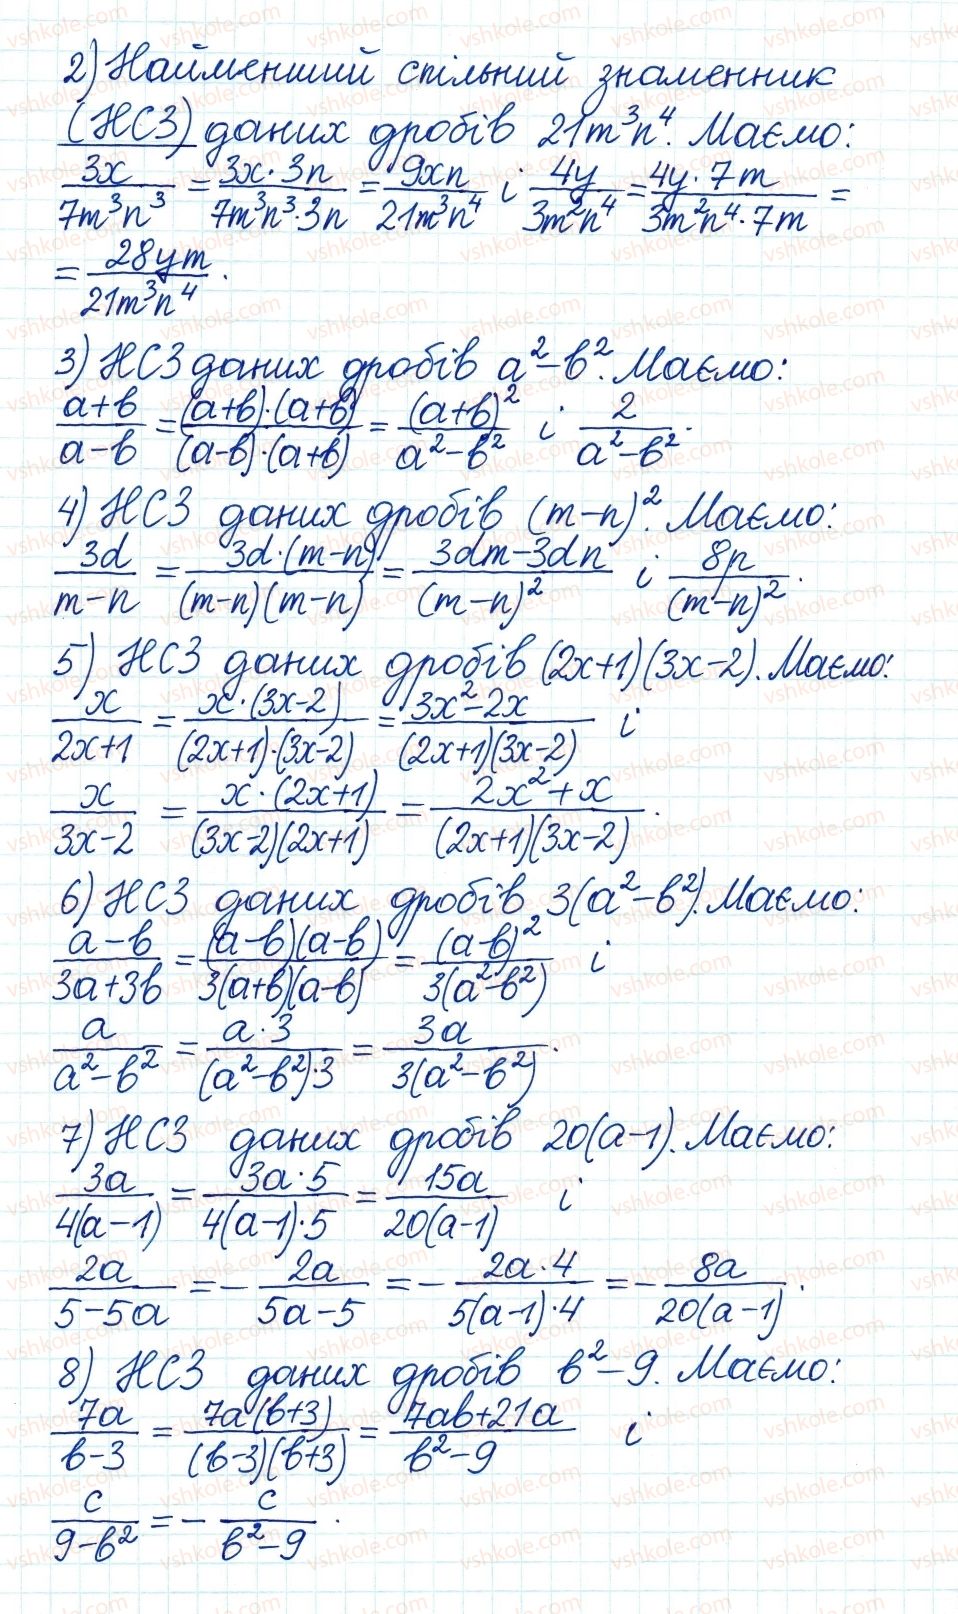 2) Найменший спільний знаменник
(НСЗ) даних дробів 21m³n⁴. Маємо:
3x/(7m³n³) = (3x·3n)/(7m³n³·3n) = 9xn/(21m³n⁴) і 4y/(3m²n⁴) = (4y·7m)/(3m²n⁴·7m) =
= 28ym/(21m³n⁴).
3) НСЗ даних дробів a²-b². Маємо:
(a+b)/(a-b) = ((a+b)·(a+b))/((a-b)·(a+b)) = (a+b)²/(a²-b²) і 2/(a²-b²).
4) НСЗ даних дробів (m-n)². Маємо:
3d/(m-n) = (3d·(m-n))/((m-n)(m-n)) = (3dm-3dn)/(m-n)² і 8p/(m-n)².
5) НСЗ даних дробів (2x+1)(3x-2). Маємо:
x/(2x+1) = (x·(3x-2))/((2x+1)·(3x-2)) = (3x²-2x)/((2x+1)(3x-2)) і
x/(3x-2) = (x·(2x+1))/((3x-2)(2x+1)) = (2x²+x)/((2x+1)(3x-2)).
6) НСЗ даних дробів 3(a²-b²). Маємо:
(a-b)/(3a+3b) = ((a-b)(a-b))/(3(a+b)(a-b)) = (a-b)²/(3(a²-b²)) і
a/(a²-b²) = (a·3)/((a²-b²)·3) = 3a/(3(a²-b²)).
7) НСЗ даних дробів 20(a-1). Маємо:
3a/(4(a-1)) = (3a·5)/(4(a-1)·5) = 15a/(20(a-1)) і
2a/(5-5a) = -2a/(5a-5) = -(2a·4)/(5(a-1)·4) = -8a/(20(a-1)).
8) НСЗ даних дробів b²-9. Маємо:
7a/(b-3) = (7a(b+3))/((b-3)(b+3)) = (7ab+21a)/(b²-9) і
c/(9-b²) = -c/(b²-9).